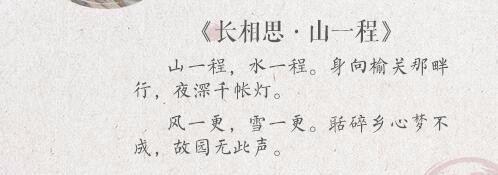 《长相思·山一程》
山一程，水一程。身向榆关那畔
行，夜深千帐灯。
风一更，雪一更。聒碎乡心梦不
成，故园无此声。